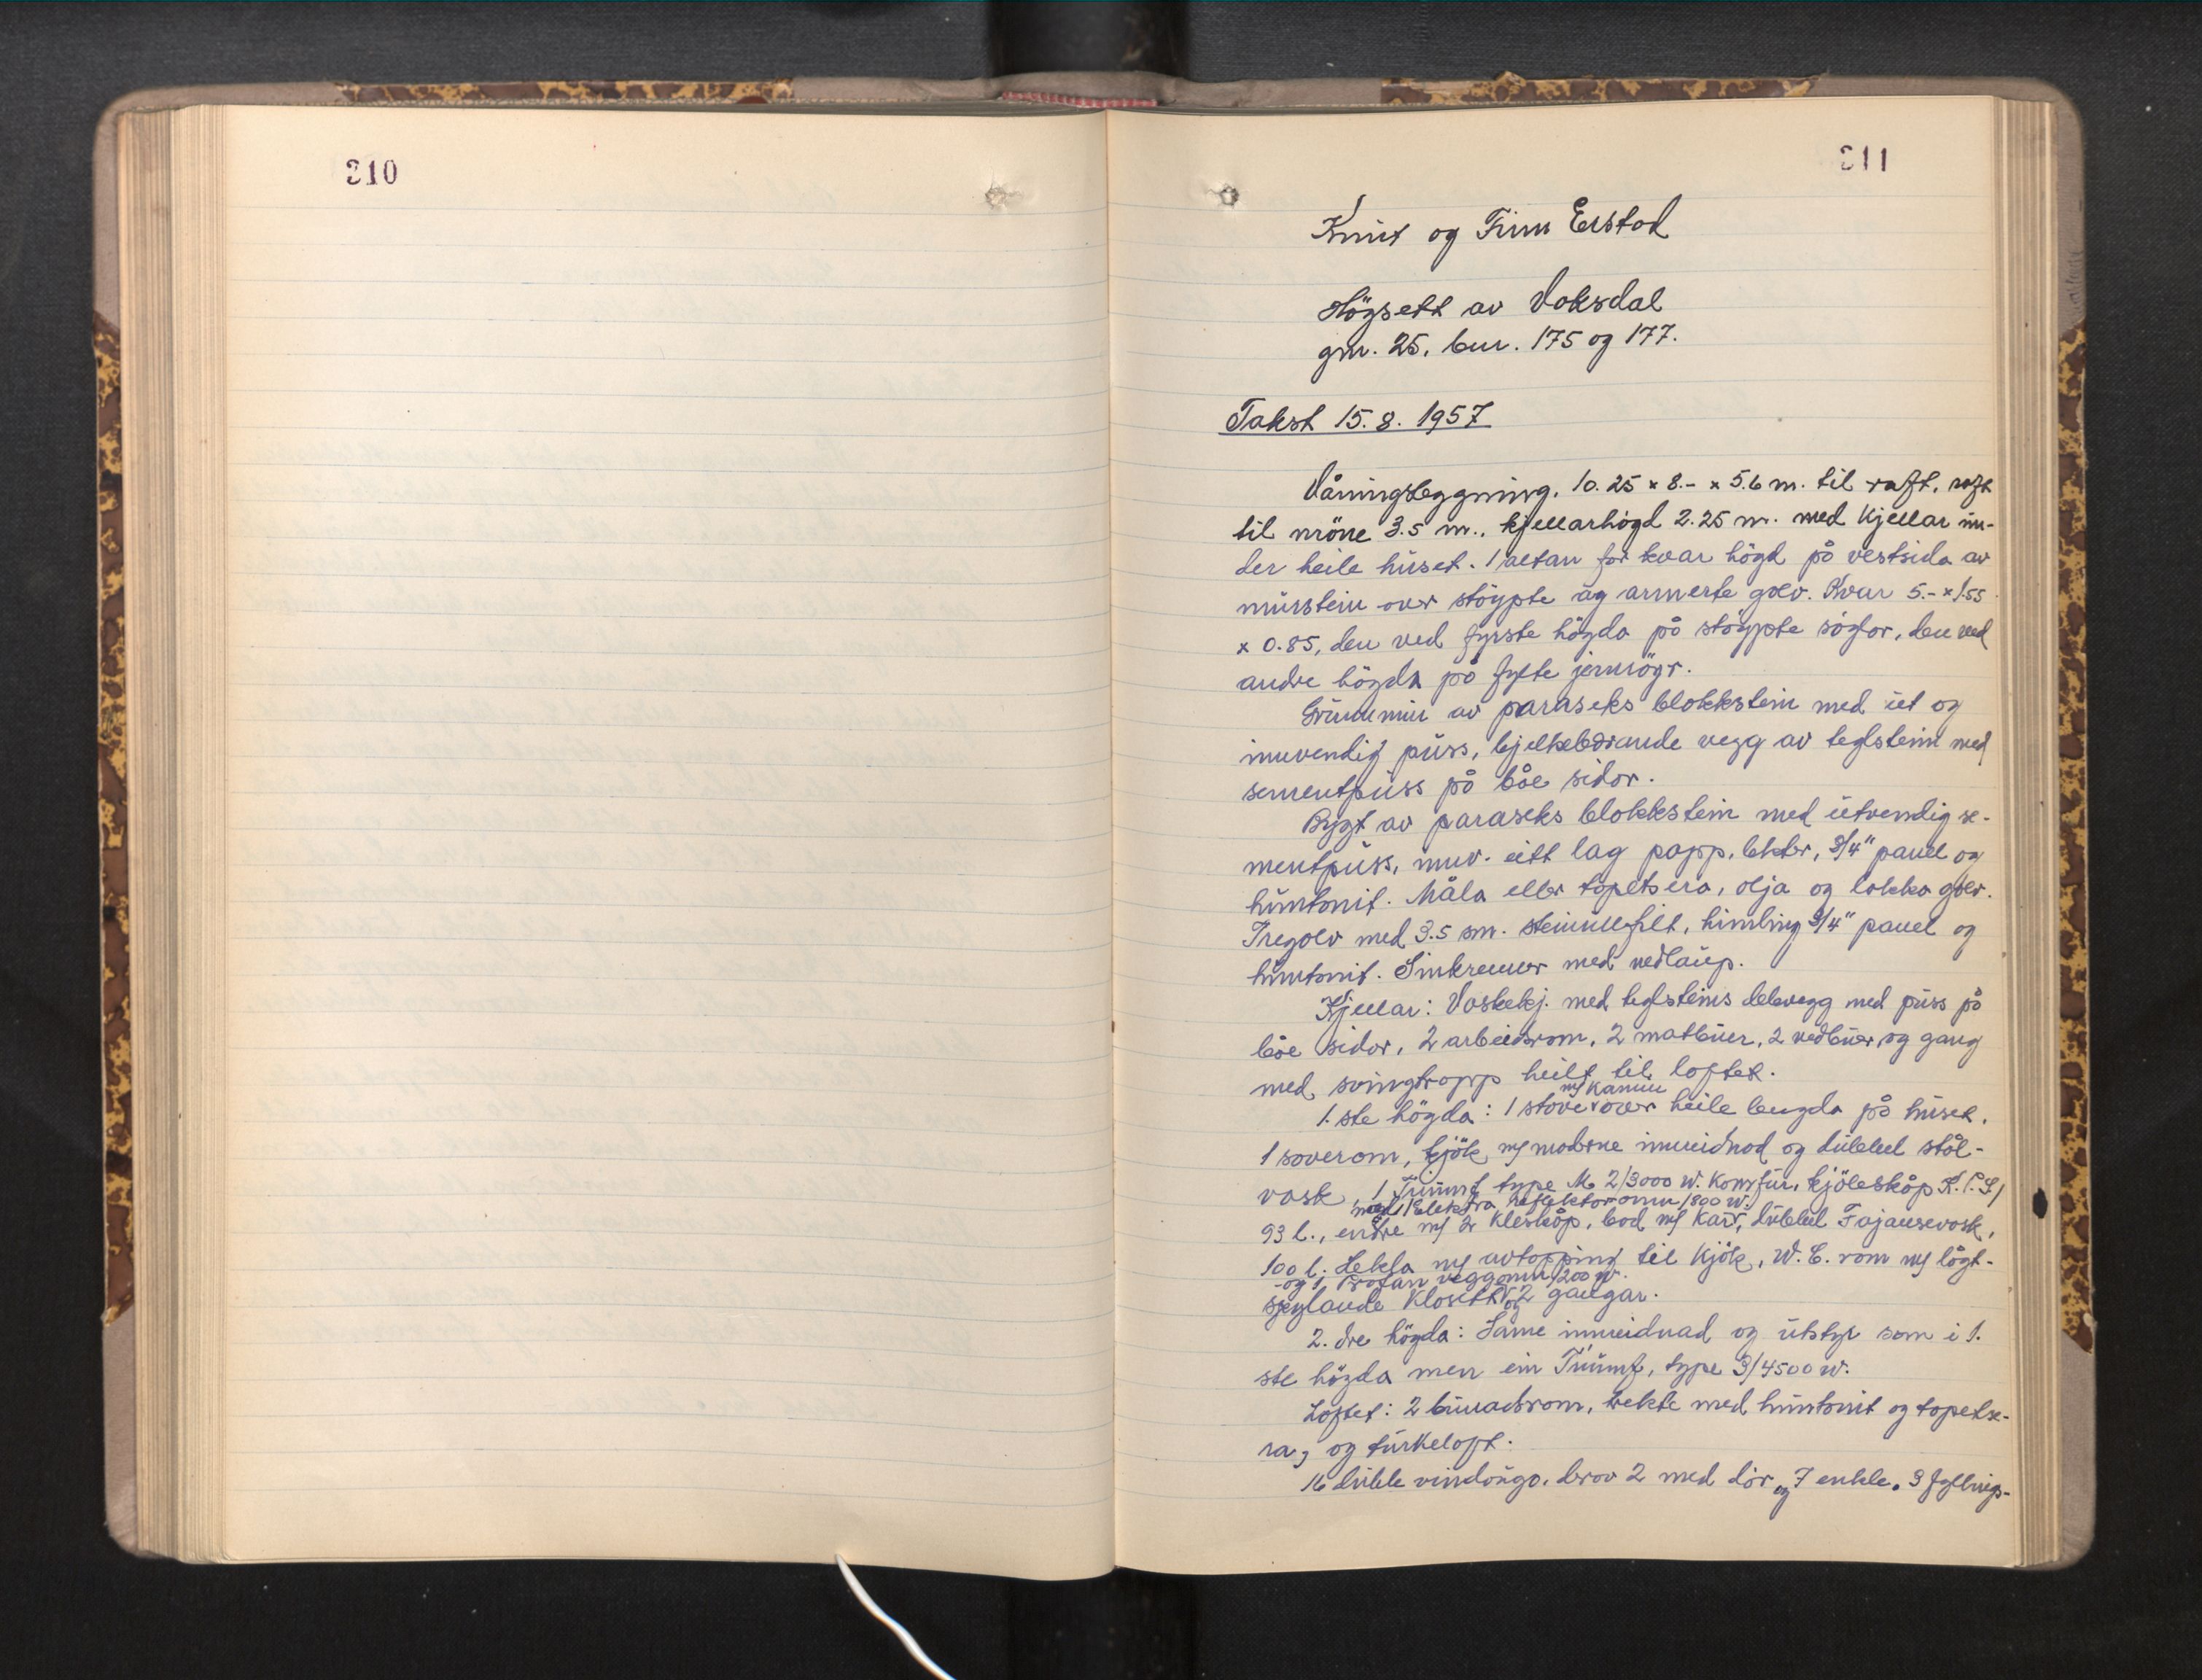 210
211
Knut og Finn Erstad
Högsett av Vaksdal
gnr. 25, bnr. 175 og 177.
Takst 15.8. 1957
Våningsbyggning. 10.25 x 8.- x 5.6 m. til raft, raft
til möne 3.5 m., kjellarhögd 2.25 m. med kjellar un-
der heile huset. 1 altan for kvar högd på vestsida av
murstein over stöypte og armerte golv. Kvar 5.- x 1.55
x 0.85, den ved fyrste högda på stöypte söylor, den ved
andre högda på fylte jernröyr.
Grunnmur av paraseks blokkstein med ut og
innvendig puss, bjelkebærande vegg av teglstein med
sementpuss på båe sidor.
Bygt av paraseks blokkstein med utvendig se-
mentpuss, innv. eitt lag papp, lekter, 3/4" panel og
huntonit. Måla eller tapetsera, olja og lakka golv.
Tregolv med 3.5 sm. steinullfilt, himling 3/4" panel og
huntonit. Sinkrenner med nedlaup.
Kjellar: Vaskekj. med teglsteins delevegg med puss på
båe sidor, 2 arbeidsrom, 2 matbuer, 2 vedbuer og gang
med svingtrapp heilt til loftet.
m/ kamin
1. ste högda: 1 stove over heile lengda på huset,
1 soverom, kjök m/ moderne innreidnad og dubbel stål-
vask, 1 Triumf type M 2/3000 w. komfur, kjöleskåp K.P.S/
med 1 Elektra reflektoromn 1800 w.
93 l., entre m/ 2 kleskåp, bad m/ kar, dubbel Fajansevask,
100 l. Hekla m/ avtapping til kjök, W.C. rom m/ lågt-
og 1 Profan veggomn 1200 w.
spylande klosett og 2 gangar.
2. dre högda: Same innreidnad og utstyr som i 1.
ste högda men ein Triumf, type 3/4500 w.
Loftet: 2 bunadsrom, trekte med huntonit og tapetse-
ra, og turkeloft.
16 duble vindaugo, derav 2 med dör og 7 enkle. 3 fyllings-